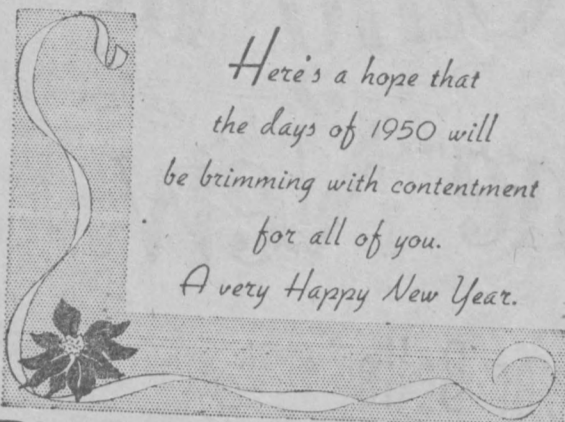 Here's a hope that
the days of 1950 will
be brimming with contentment
for all of you.
A very Happy New Year.